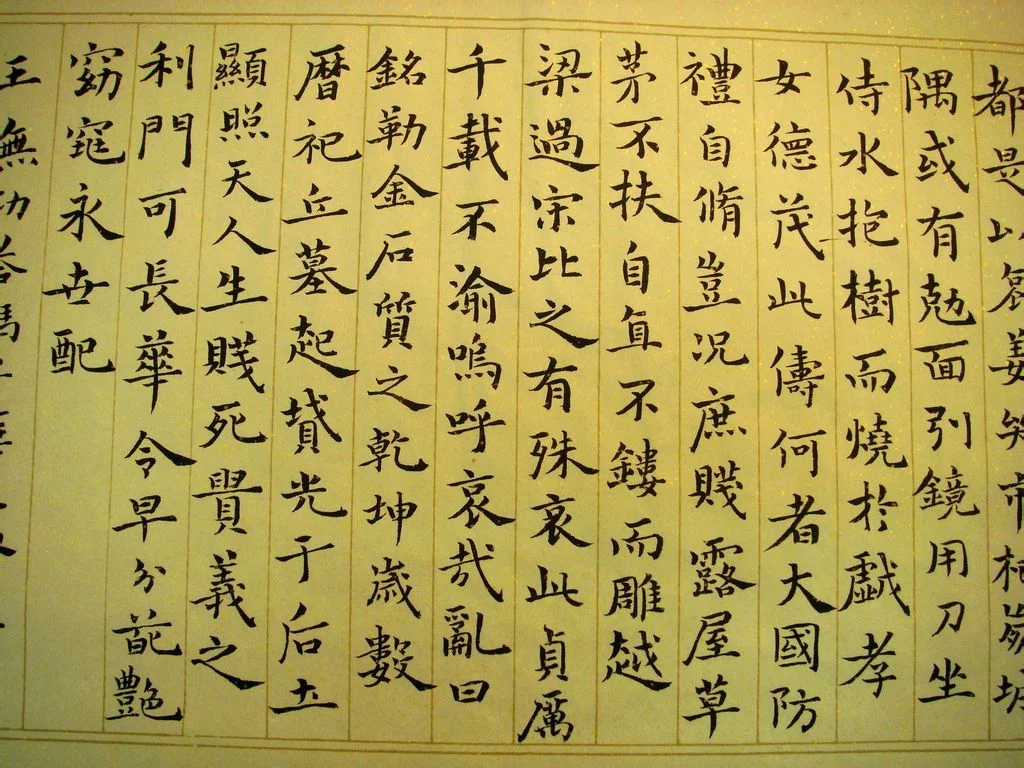 都是以哀姜哭市杞崩城
隅或有勀面引鏡用刀坐
侍水抱樹而燒於戯孝
女德茂此儔何者大國防
禮自脩豈況庶賤露屋草
茅不扶自直不鏤而雕越
梁過宋比之有殊哀此貞厲
千載不渝嗚呼哀哉亂曰
銘勒金石質之乾坤歲數
曆祀丘墓起墳光于后土
顯照天人生賤死貴義之
利門可長華令早分葩艶
窈窕永世配
王無功答馮子